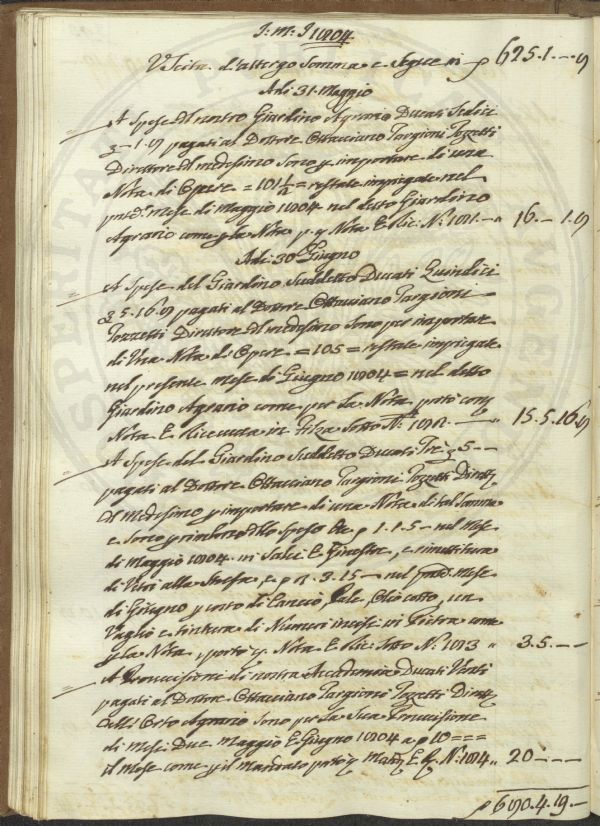 J: M: J 1804.
Uscita d'attergo Somma e Segue in p 625.1.-.8
Adi 31. Maggio
A Spese del nostro Giardino Agrario Ducati Sedici
3 - 1.8 pagati al Dottore Ottaviano Targioni Tozzetti
Direttore del medesimo Sono p. importare di una
Nota di Opere = 101 1/2 = restate impiegate nel
pred.o mese di Maggio 1804 nel detto Giardino
Agrario come p. la Nota p. q. Nota E Ric: N.: 181. - " 16. - 1.8
Adi 30 Giugno
A Spese del Giardino Suddetto Ducati Quindici
5.16.8 pagati al Dottore Ottaviano Targioni
Tozzetti Direttore del medesimo Sono per importare
di Una Nota di Opere = 105 = restate impiegate
nel presente mese di Giugno 1804 = nel detto
Giardino Agrario come per la Nota porto con
Nota E Ricevuta in Filza Sotto N.o 182. - " 15.5.16.8
A Spese del Giardino Suddetto Ducati Tre 5 - -
pagati al Dottore Ottaviano Targioni Tozzetti Dirett.e
del Medesimo p. importare di una Nota di tal Somma
e Sono p. rimborso dello Speso da p 1.1.5 - nel Mese
di Maggio 1804. in Salci E Ginestre, e rimettitura
di Vetri alla Stufa, e p 2. 3.15 - nel pred.o Mese
di Giugno p. conto di Concio, Pale, Olio cotto, un
Vaglio e tintura di Numeri incise in Pietra come
p. la Nota, porto q. Nota E Ric: Sotto N.: 183 " 3.5. - -
A Provvisioni di nostra Accademia Ducati Venti
pagati al Dottore Ottaviano Targioni Tozzetti Dirett.e
dell'Orto Agrario Sono per la Sua Provvisione
di Mesi Due Maggio E Giugno 1804 a p 10 = = =
il Mese come p. il Mandato porto q. Mand.o E R. N: 184 " 20 - - -
p 680.4.19. -